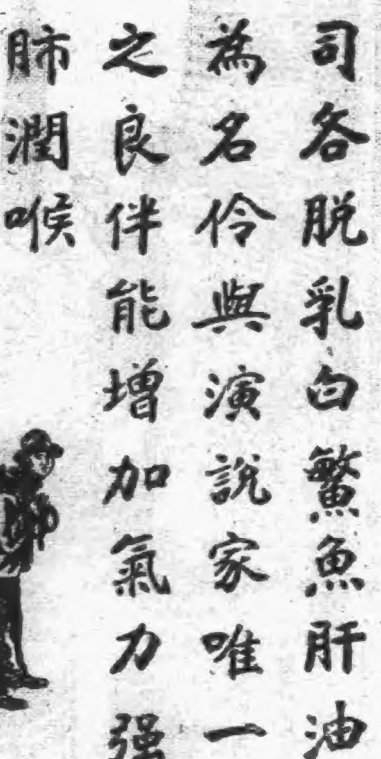 司各脱乳白鰵魚肝油
為名伶與演說家唯一
之良伴能增加氣力强
肺潤喉